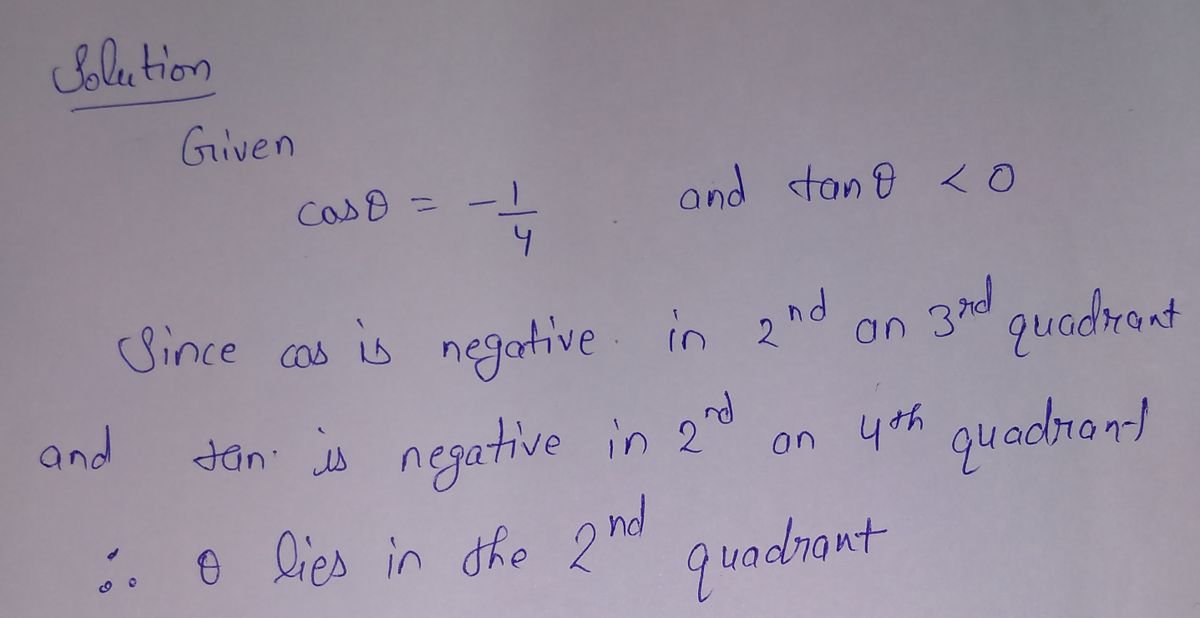 Solution
Given
cosθ = -1/4 and tanθ < 0
Since cos is negative in 2nd an 3rd quadrant
and tan is negative in 2nd an 4th quadrant
∴ θ lies in the 2nd quadrant